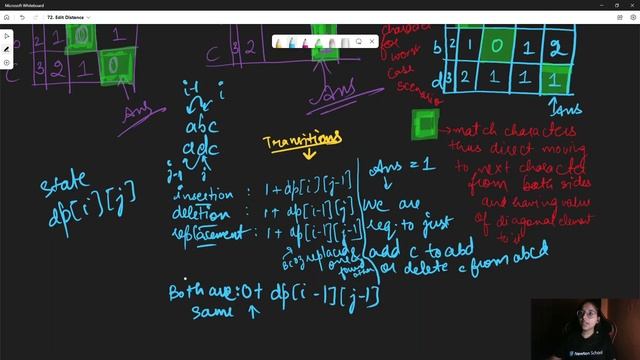 Microsoft Whiteboard
72. Edit Distance
2 1 0 1
C 3 2 1 0
Ans
C 3 2
Ans
character
for
worst
case
scenario
b 2 1 0 1 2
d 3 2 1 1 1
Ans
match characters
thus direct moving
to next character
from both sides
and having value
of diagonal element
to it
i-1 i
abc
adc
j-1 j
state
dp[i][j]
Transitions
insertion : 1+dp[i][j-1]
deletion : 1+dp[i-1][j]
replacement : 1+dp[i-1][j-1]
Ans = 1
we are
req. to just
add c to abd
or delete c from abcd
Both are : 0+ dp[i-1][j-1]
same
Newton School